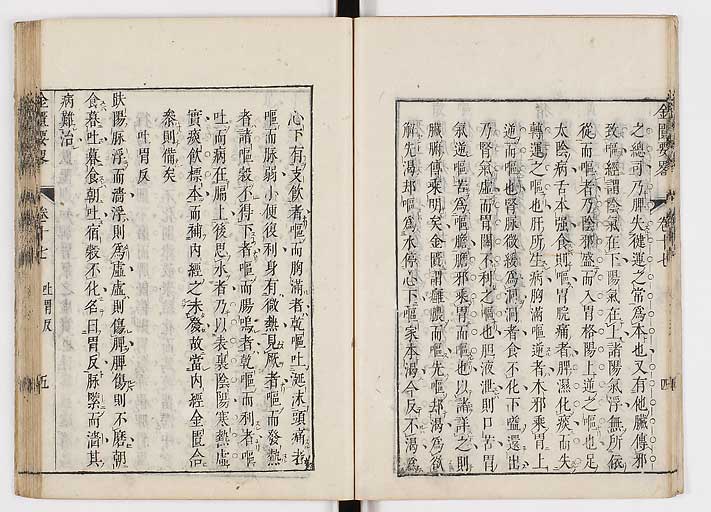 之總司乃脾失健運之常爲本也又有他臟傳邪
致嘔經謂陰氣在下陽氣在上諸陽氣浮無所依
從而嘔者乃陰邪盛而入胃格陽上逆之嘔也足
太陰病舌本强食則嘔胃脘痛者脾濕化痰而失
轉運之嘔也肝所生病胸滿嘔逆者木邪乘胃上
逆而嘔也腎脉微緩爲洞洞者食不化下嗌還出
乃腎氣虛而胃關不利之嘔也胆液泄則口苦胃
氣逆嘔苦爲嘔膽膽邪乘胃而嘔也以諸詳之則
臟腑傳乘明矣金匱謂雖嘔而嘔先嘔却渴爲欲
解先渴却嘔爲水停心下嘔家本渴今反不渴爲
金匱要畧
卷十七
四
心下有支飲者嘔而胸滿者乾嘔吐涎沫頭痛者
嘔而脉弱小便復利身有微熱見厥者嘔而發熱
者諸嘔穀不得下者嘔而腸鳴者乾嘔而利者嘔
吐而病在膈上後思水者乃以表裏陰陽寒熱虛
實痰飲標本而補內經之未發故當內經金匱合
叅則備矣
吐胃反
趺陽脉浮而濇浮則爲虛虛則傷脾脾傷則不磨朝
食暮吐暮食朝吐宿穀不化名曰胃反脉緊而濇其
病難治
金匱要畧
卷十七
吐胃反
五